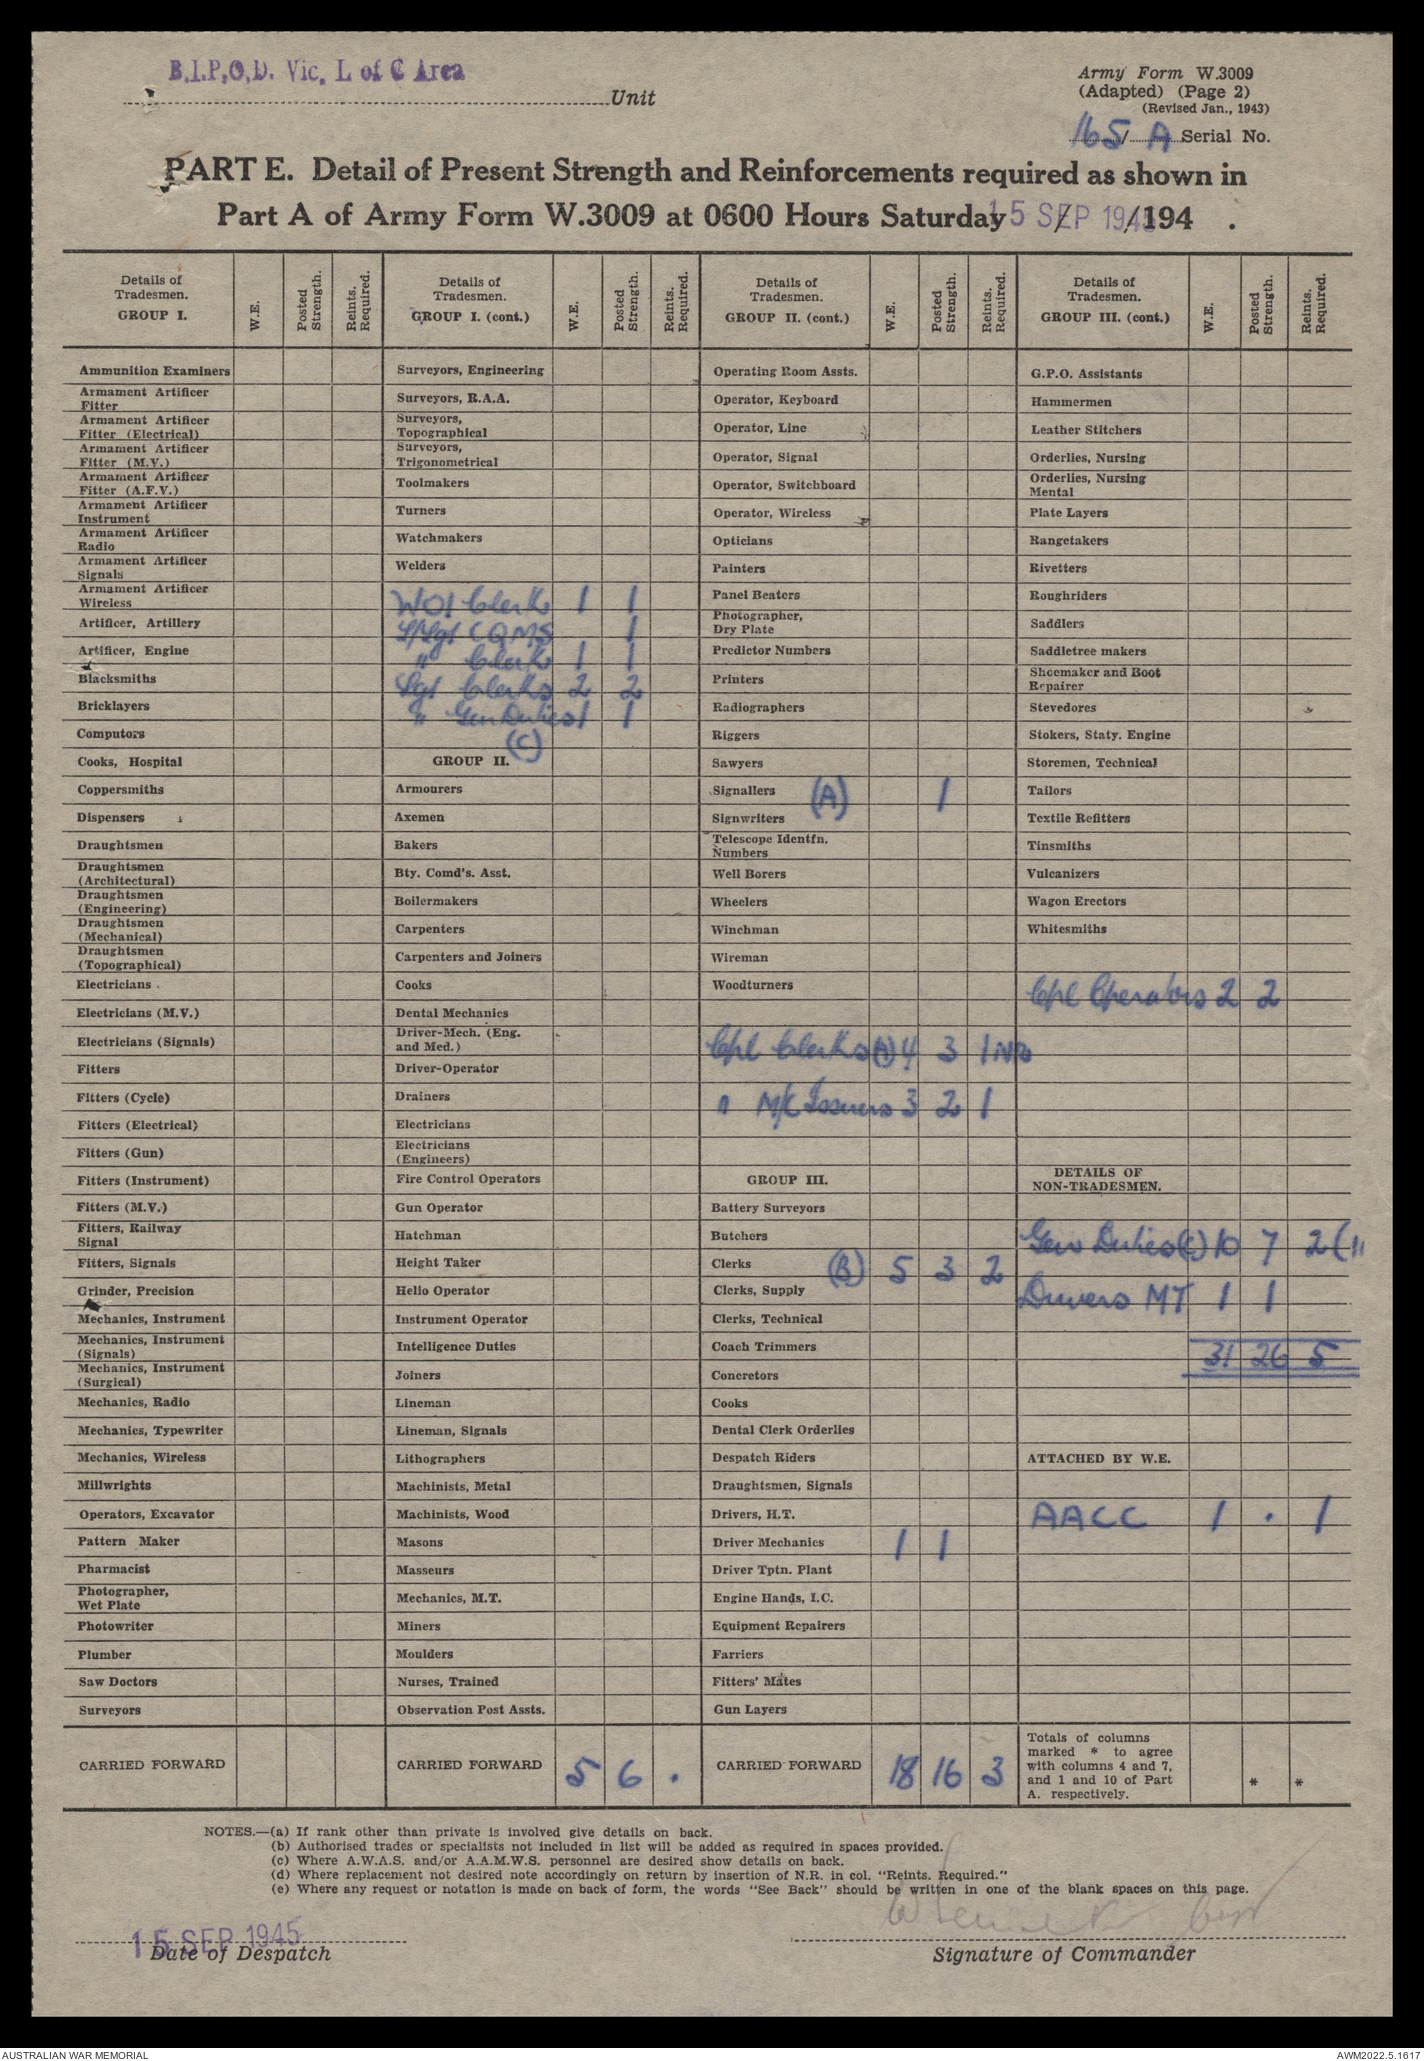 B.I.P.O.D. Vic. L of C Area
Unit
Army Form W.3009
(Adapted) (Page 2)
(Revised Jan., 1943)
165/A Serial No.
PART E. Detail of Present Strength and Reinforcements required as shown in
Part A of Army Form W.3009 at 0600 Hours Saturday 15 SEP 1945 / /194 .
Details of Tradesmen. GROUP I. W.E. Posted Strength. Reints. Required.
Ammunition Examiners
Armament Artificer Fitter
Armament Artificer Fitter (Electrical)
Armament Artificer Fitter (M.V.)
Armament Artificer Fitter (A.F.V.)
Armament Artificer Instrument
Armament Artificer Radio
Armament Artificer Signals
Armament Artificer Wireless
Artificer, Artillery
Artificer, Engine
Blacksmiths
Bricklayers
Computors
Cooks, Hospital
Coppersmiths
Dispensers
Draughtsmen
Draughtsmen (Architectural)
Draughtsmen (Engineering)
Draughtsmen (Mechanical)
Draughtsmen (Topographical)
Electricians
Electricians (M.V.)
Electricians (Signals)
Fitters
Fitters (Cycle)
Fitters (Electrical)
Fitters (Gun)
Fitters (Instrument)
Fitters (M.V.)
Fitters, Railway Signal
Fitters, Signals
Grinder, Precision
Mechanics, Instrument
Mechanics, Instrument (Signals)
Mechanics, Instrument (Surgical)
Mechanics, Radio
Mechanics, Typewriter
Mechanics, Wireless
Millwrights
Operators, Excavator
Pattern Maker
Pharmacist
Photographer, Wet Plate
Photowriter
Plumber
Saw Doctors
Surveyors
CARRIED FORWARD
Details of Tradesmen. GROUP I. (cont.) W.E. Posted Strength. Reints. Required.
Surveyors, Engineering
Surveyors, R.A.A.
Surveyors, Topographical
Surveyors, Trigonometrical
Toolmakers
Turners
Watchmakers
Welders
WO1 Clerk 1 1
S/Sgt CQMS 1
" Clerk 1 1
Sgt Clerks 2 2
" Gen Duties 1 1
(C)
GROUP II.
Armourers
Axemen
Bakers
Bty. Comd's. Asst.
Boilermakers
Carpenters
Carpenters and Joiners
Cooks
Dental Mechanics
Driver-Mech. (Eng. and Med.)
Driver-Operator
Drainers
Electricians
Electricians (Engineers)
Fire Control Operators
Gun Operator
Hatchman
Height Taker
Helio Operator
Instrument Operator
Intelligence Duties
Joiners
Lineman
Lineman, Signals
Lithographers
Machinists, Metal
Machinists, Wood
Masons
Masseurs
Mechanics, M.T.
Miners
Moulders
Nurses, Trained
Observation Post Assts.
CARRIED FORWARD 5 6 .
Details of Tradesmen. GROUP II. (cont.) W.E. Posted Strength. Reints. Required.
Operating Room Assts.
Operator, Keyboard
Operator, Line
Operator, Signal
Operator, Switchboard
Operator, Wireless
Opticians
Painters
Panel Beaters
Photographer, Dry Plate
Predictor Numbers
Printers
Radiographers
Riggers
Sawyers
Signallers (A) 1
Signwriters
Telescope Identfn. Numbers
Well Borers
Wheelers
Winchman
Wireman
Woodturners
Cpl Clerks (A) 4 3 1 NR
" M/C Issuers 3 2 1
GROUP III.
Battery Surveyors
Butchers
Clerks (B) 5 3 2
Clerks, Supply
Clerks, Technical
Coach Trimmers
Concretors
Cooks
Dental Clerk Orderlies
Despatch Riders
Draughtsmen, Signals
Drivers, H.T.
Driver Mechanics 1 1
Driver Tptn. Plant
Engine Hands, I.C.
Equipment Repairers
Farriers
Fitters' Mates
Gun Layers
CARRIED FORWARD 18 16 3
Details of Tradesmen. GROUP III. (cont.) W.E. Posted Strength. Reints. Required.
G.P.O. Assistants
Hammermen
Leather Stitchers
Orderlies, Nursing
Orderlies, Nursing Mental
Plate Layers
Rangetakers
Rivetters
Roughriders
Saddlers
Saddletree makers
Shoemaker and Boot Repairer
Stevedores
Stokers, Staty. Engine
Storemen, Technical
Tailors
Textile Refitters
Tinsmiths
Vulcanizers
Wagon Erectors
Whitesmiths
Cpl Operators 2 2
DETAILS OF NON-TRADESMEN.
Gen Duties (C) 10 7 2
Drivers MT 1 1
31 26 5
ATTACHED BY W.E.
AACC 1 . 1
Totals of columns marked * to agree with columns 4 and 7, and 1 and 10 of Part A. respectively. * *
NOTES.—(a) If rank other than private is involved give details on back.
(b) Authorised trades or specialists not included in list will be added as required in spaces provided.
(c) Where A.W.A.S. and/or A.A.M.W.S. personnel are desired show details on back.
(d) Where replacement not desired note accordingly on return by insertion of N.R. in col. "Reints. Required."
(e) Where any request or notation is made on back of form, the words "See Back" should be written in one of the blank spaces on this page.
15 SEP 1945
Date of Despatch
Signature of Commander
AUSTRALIAN WAR MEMORIAL
AWM2022.5.1617